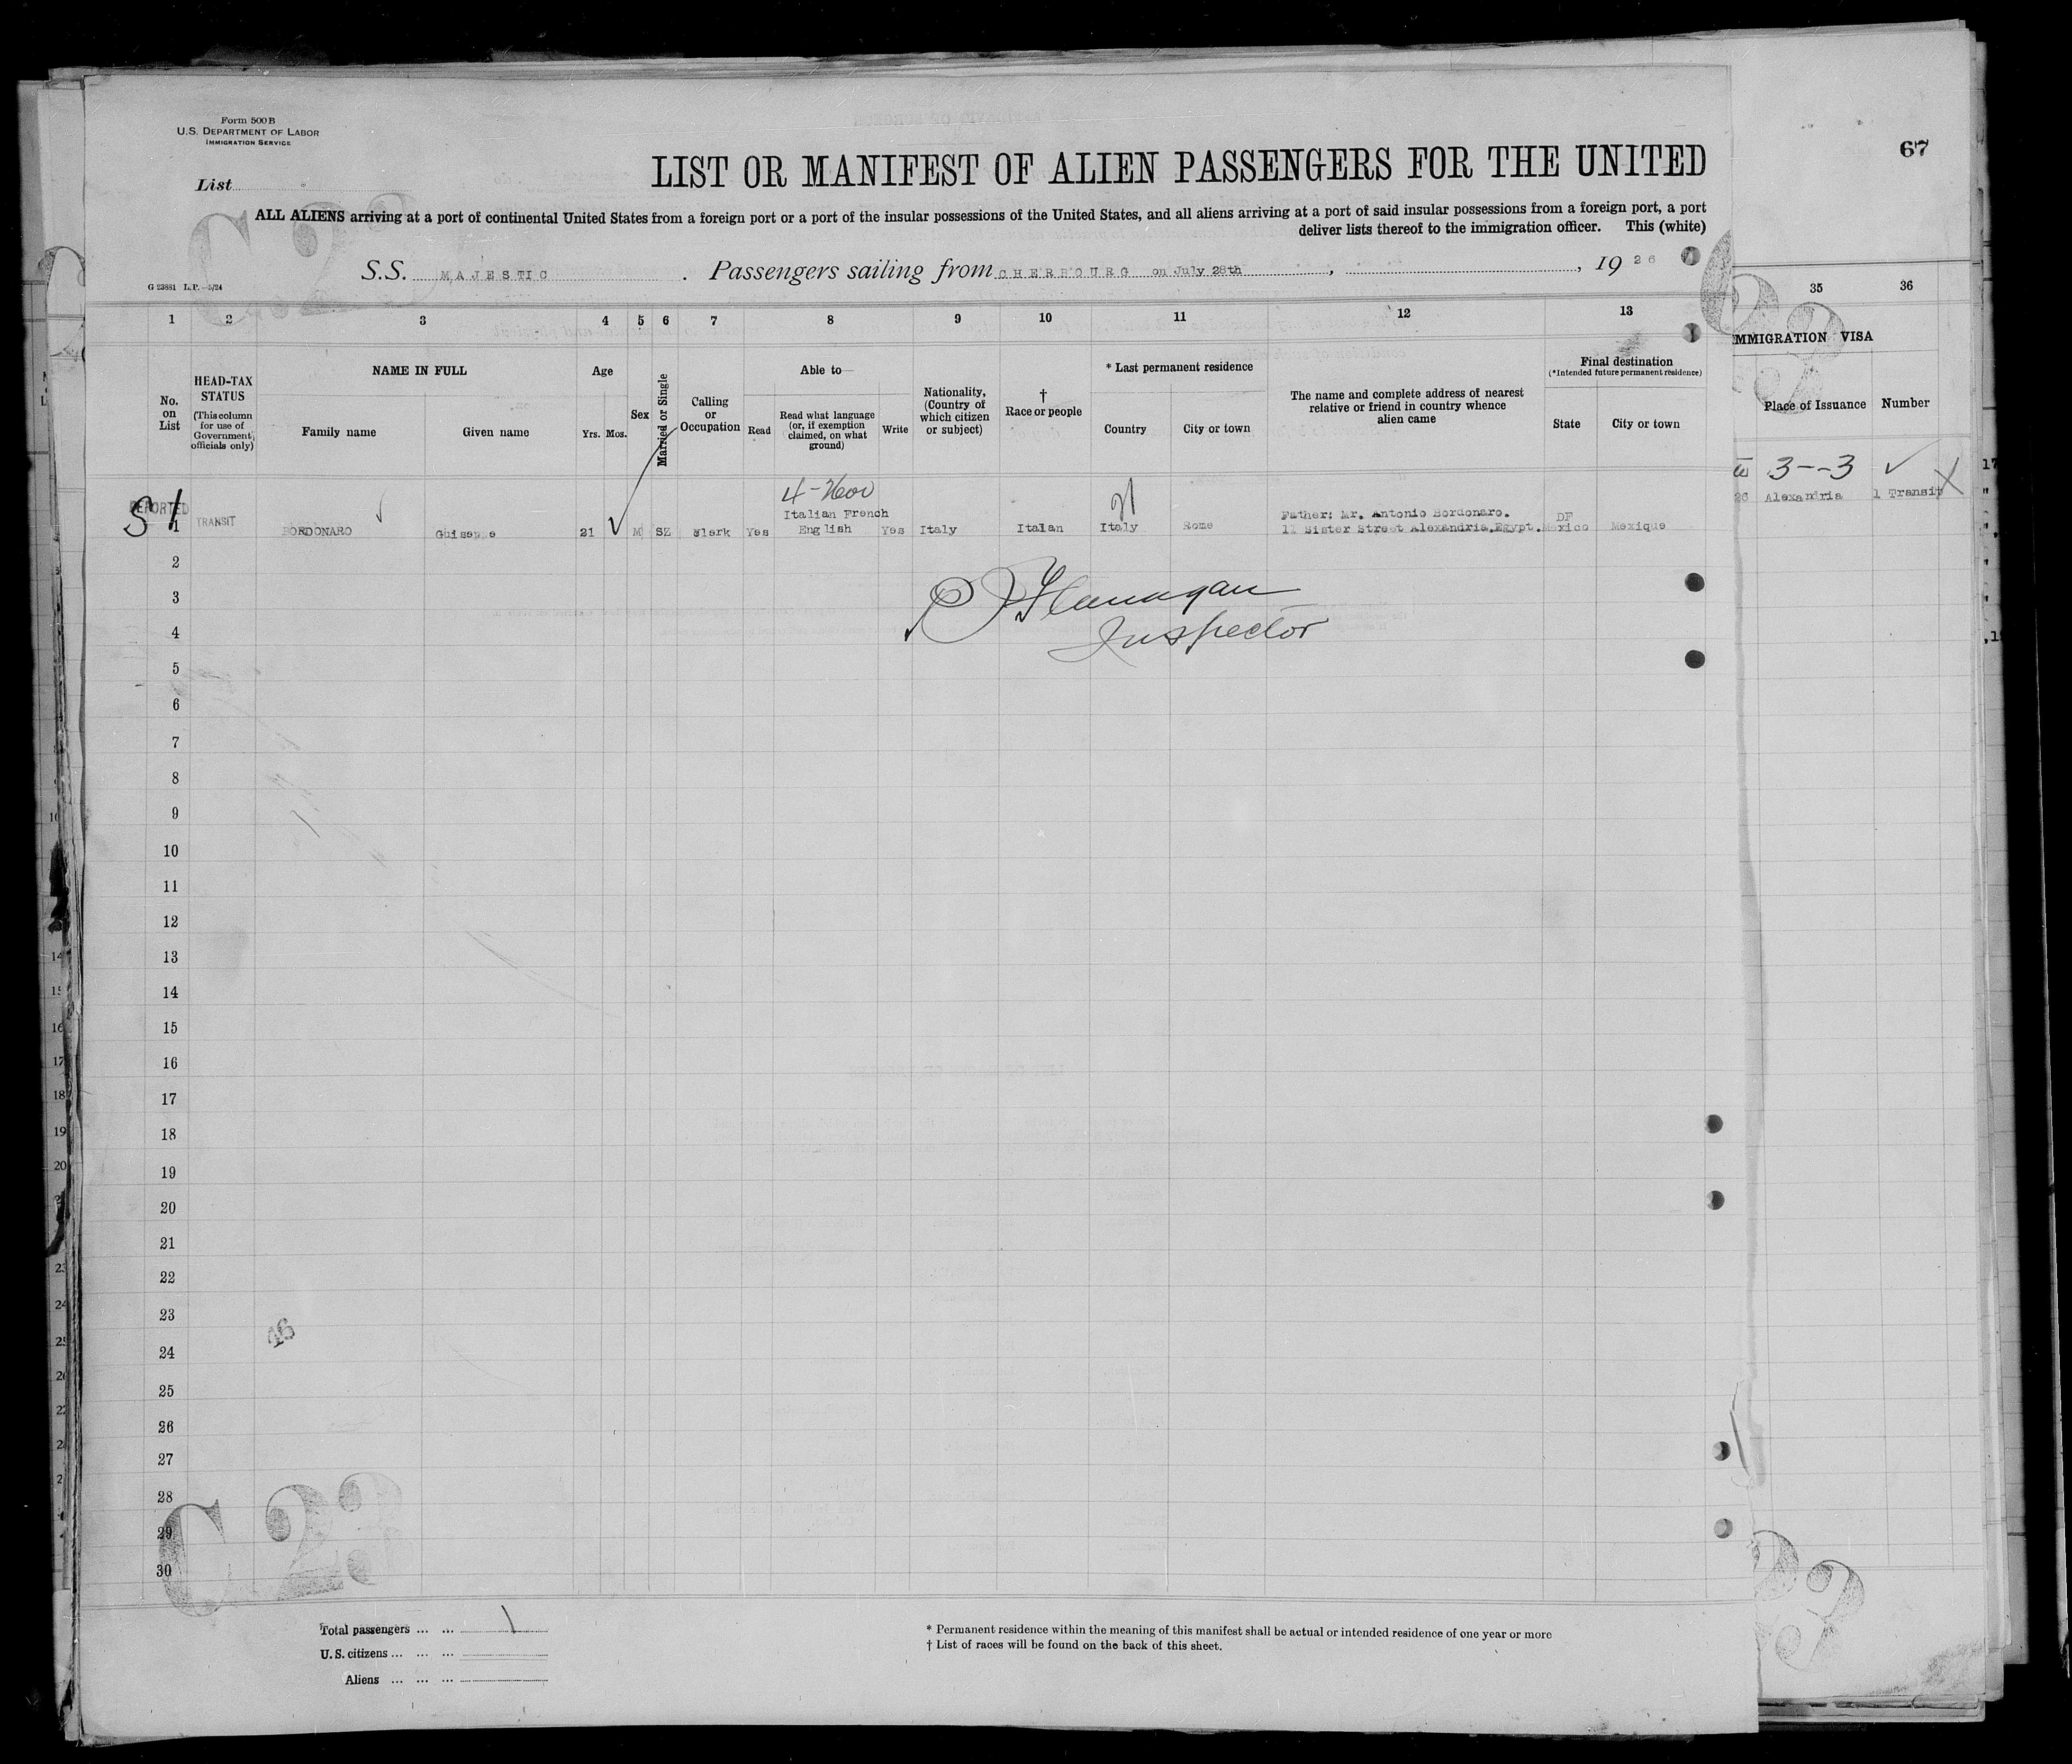 Form 500 B
U.S. DEPARTMENT OF LABOR
IMMIGRATION SERVICE
67
List
LIST OR MANIFEST OF ALIEN PASSENGERS FOR THE UNITED
ALL ALIENS arriving at a port of continental United States from a foreign port or a port of the insular possessions of the United States, and all aliens arriving at a port of said insular possessions from a foreign port, a port
deliver lists thereof to the immigration officer. This (white)
C 23
S.S. MAJESTIC . Passengers sailing from CHERBOURG on July 28th , , 19 26
G 23881 L.P.—5/24
1 2 3 4 5 6 7 8 9 10 11 12 13 35 36
No. on List
HEAD-TAX STATUS
(This column for use of Government officials only)
NAME IN FULL
Family name Given name
Age
Yrs. Mos.
Sex
Married or Single
Calling or Occupation
Able to—
Read
Read what language (or, if exemption claimed, on what ground)
Write
Nationality, (Country of which citizen or subject)
† Race or people
* Last permanent residence
Country City or town
The name and complete address of nearest relative or friend in country whence alien came
Final destination
(*Intended future permanent residence)
State City or town
IMMIGRATION VISA
Place of Issuance Number
3--3
26 Alexandria 1 Transit
4-
Italian French
Father: Mr. Antonio Bordonaro.
DF
1 TRANSIT BORDONARO Guiseppe 21 M SZ Clerk Yes English Yes Italy Italan Italy Rome 11 Sister Street Alexandria.Egypt. Mexico Mexique
2
3
4
Inspector
5
6
7
8
9
10
11
12
13
14
15
16
17
18
19
20
21
22
23
46
24
25
26
27
28
29
30
C 23
Total passengers ... ... 1
U.S. citizens ... ... ...
Aliens ... ... ...
* Permanent residence within the meaning of this manifest shall be actual or intended residence of one year or more
† List of races will be found on the back of this sheet.